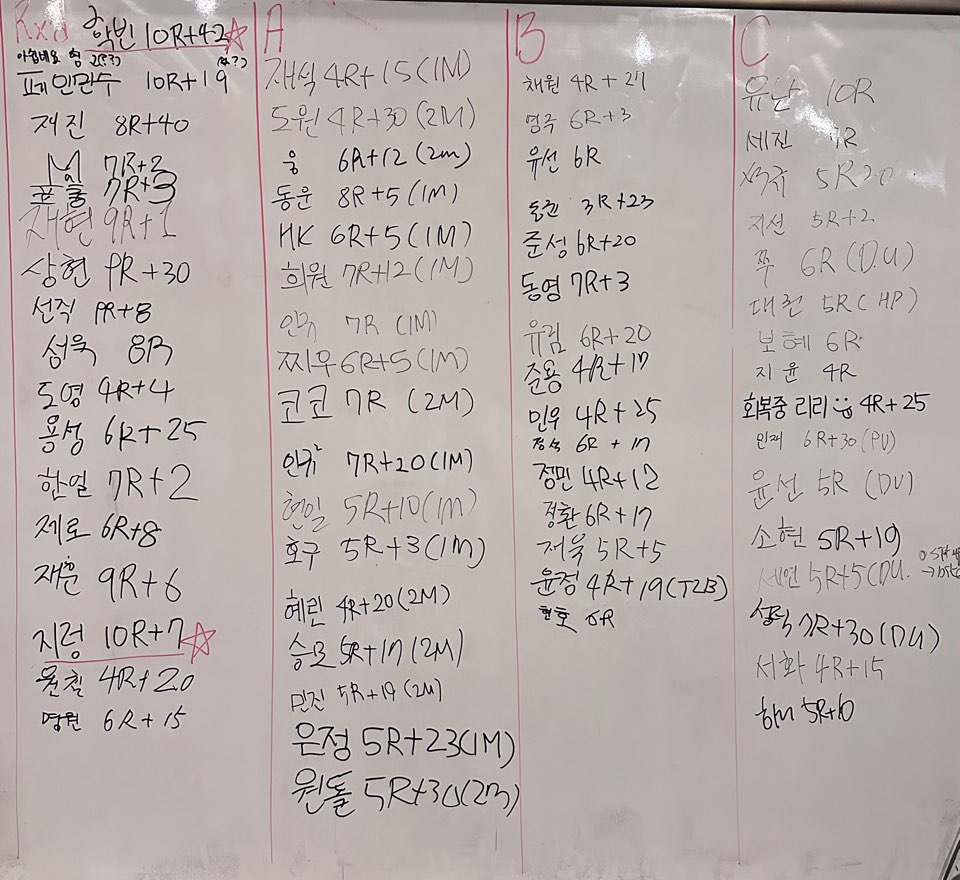 Rxd
학빈 10R+42☆
아쉽네요 형
페인관수 10R+19
재진 8R+40
M 7R+2
7R+3
재현 9R+1
상현 9R+30
선직 9R+8
성욱 8R
도영 9R+4
용성 6R+25
한열 7R+2
제로 6R+8
재훈 9R+6
지렁 10R+7☆
원칠 4R+20
명원 6R+15
A
재석 4R+15(1M)
도원 4R+30(2M)
웅 6R+12(2m)
동운 8R+5(1M)
HK 6R+5(1M)
희원 7R+12(1M)
인규 7R(1M)
찌우 6R+5(1M)
코코 7R (2M)
인규² 7R+20(1M)
현일 5R+10(1M)
호구 5R+3(1M)
혜린 4R+20(2M)
승모 5R+17(2M)
민진 5R+19(2M)
은정 5R+23(1M)
원돌 5R+30(2M)
B
채원 4R+27
명국 6R+3
유선 6R
3R+23
준성 6R+20
동영 7R+3
유림 6R+20
준용 4R+17
민우 4R+25
정석 6R+17
정민 4R+12
정환 6R+17
저욱 5R+5
윤정 4R+19(T2B)
현호 6R
C
유난 10R
세진 7R
5R20
지선 5R+2
쭈 6R(D.U)
대건 5R(HP)
보혜 6R
지윤 4R
회복중 리리 4R+25
민재 6R+30(PU)
윤선 5R (DU)
소현 5R+19
세연 5R+5(DU.
성덕 7R+30(DU)
서화 4R+15
5R+10